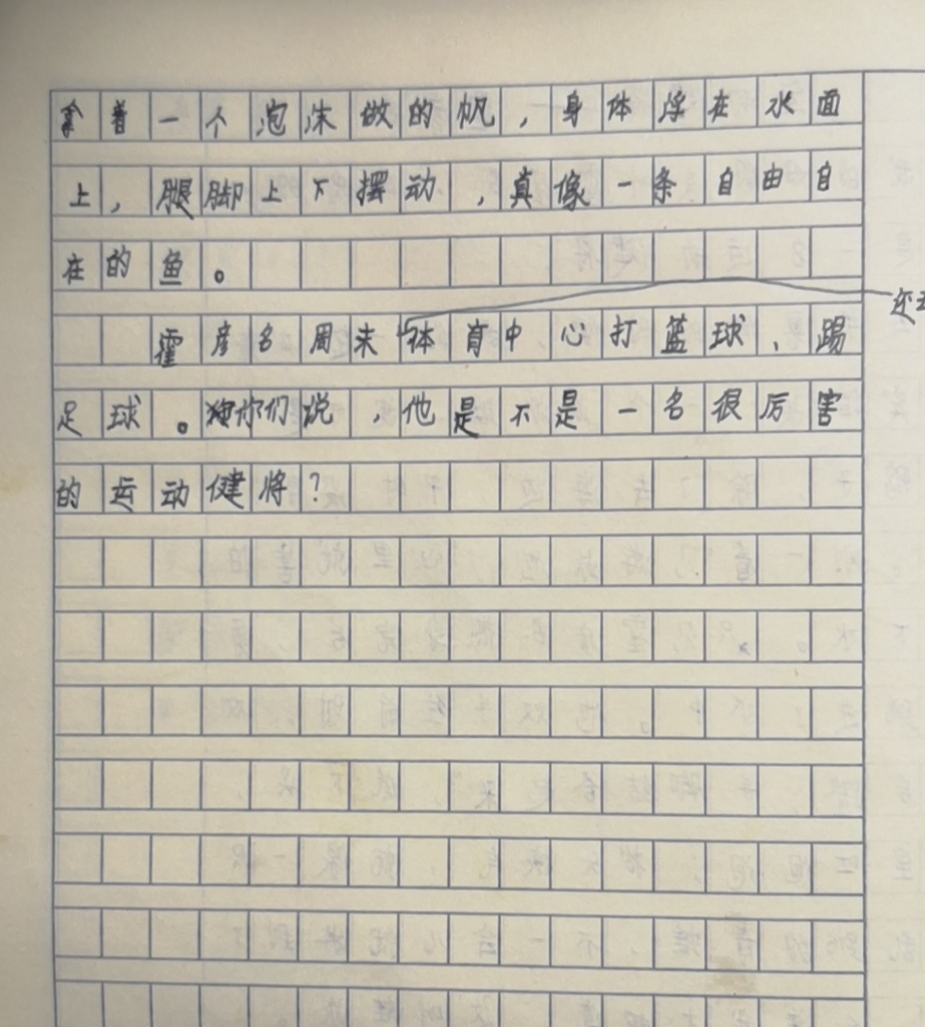 拿着一个泡沫做的帆，身体浮在水面
上，腿脚上下摆动，真像一条自由自
在的鱼。
还
霍彦名周末体育中心打篮球、踢
足球。你们说，他是不是一名很厉害
的运动健将？